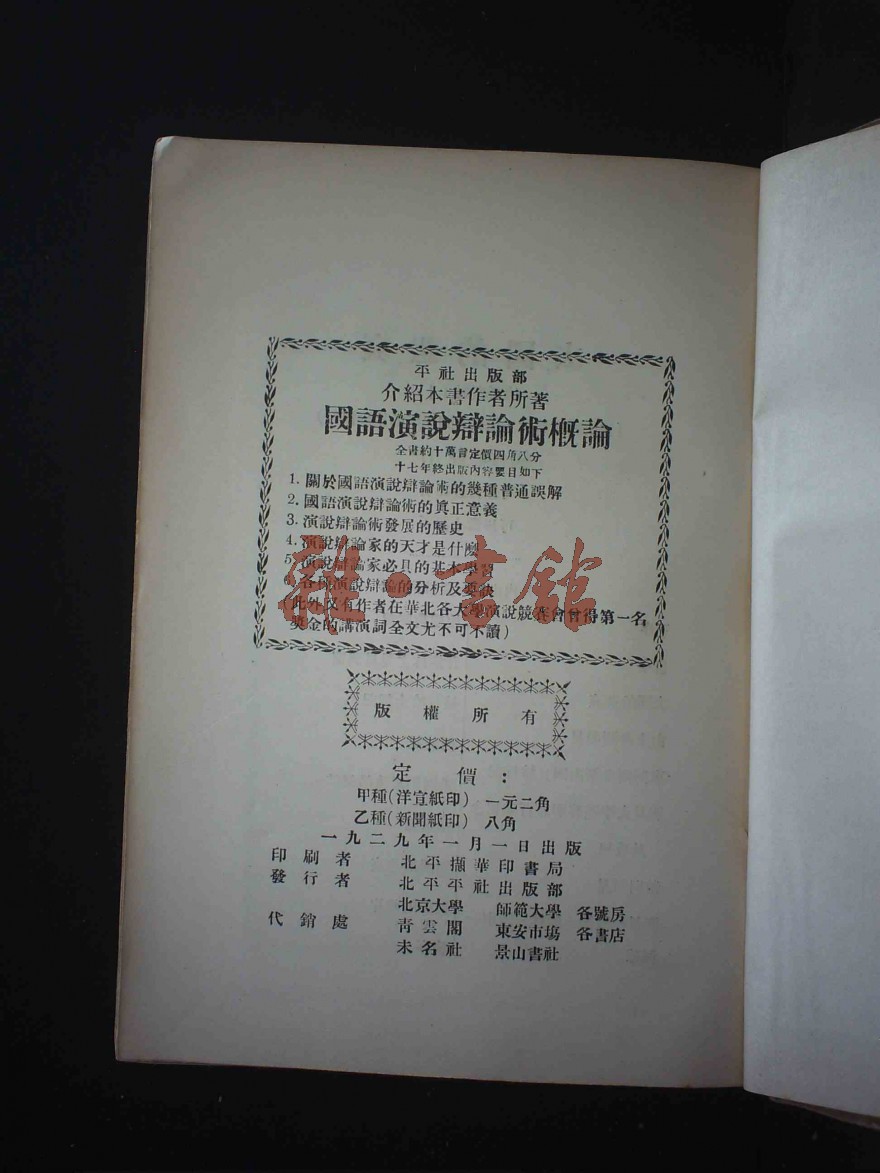 平社出版部
介紹本書作者所著
國語演說辯論術概論
全書約十萬言定價四角八分
十七年終出版內容要目如下
1. 關於國語演說辯論術的幾種普通誤解
2. 國語演說辯論術的眞正意義
3. 演說辯論術發展的歷史
4. 演說辯論家的天才是什麼
5. 演說辯論家必具的基本學習
6. 各種演說辯論的分析及要訣
(此外又有作者在華北各大學演說競賽會曾得第一名
獎金的講演詞全文尤不可不讀)
雜·書館
版權所有
定價：
甲種(洋宣紙印) 一元二角
乙種(新聞紙印) 八角
一九二九年一月一日出版
印刷者 北平擷華印書局
發行者 北平平社出版部
代銷處
北京大學 師範大學 各號房
青雲閣 東安市場 各書店
未名社 景山書社